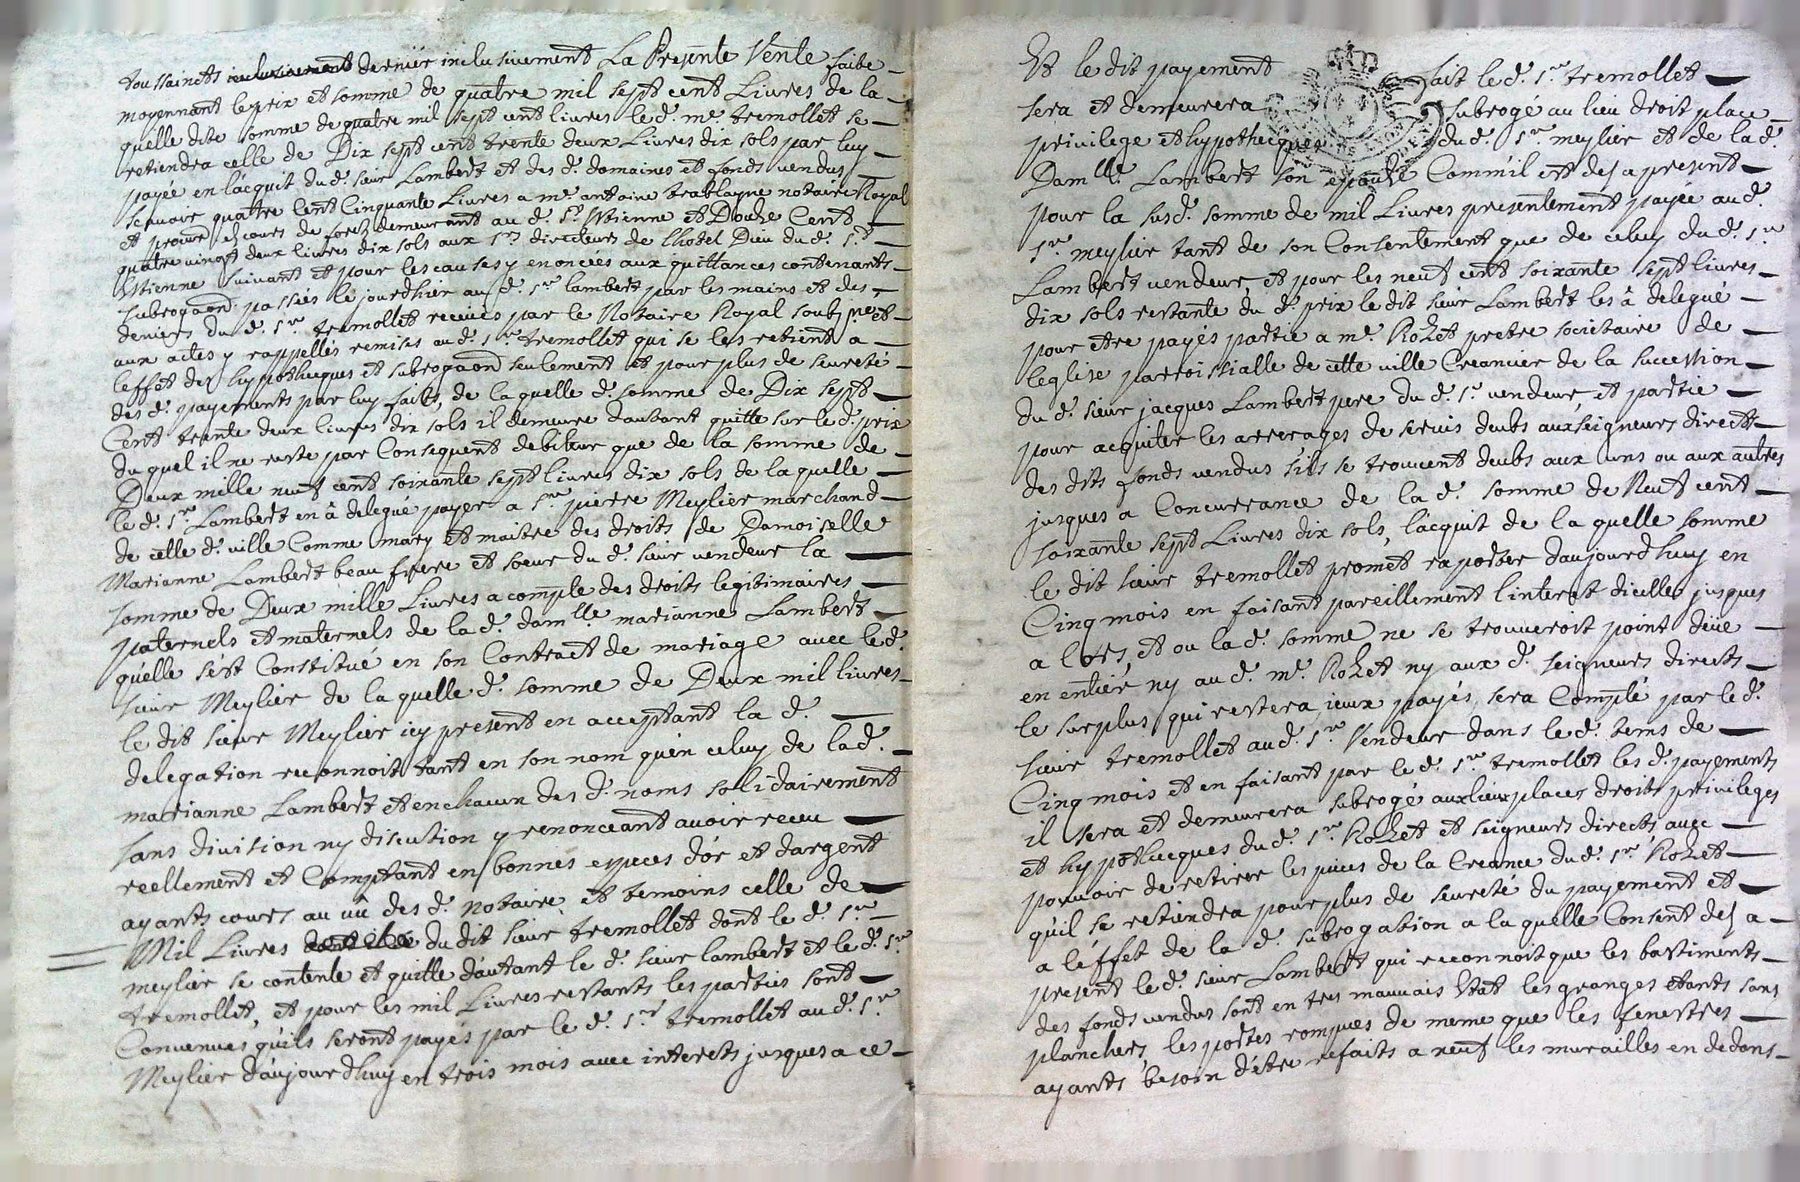 toussaincts inclusivement dernier inclusivement La Presente Vente faite
moyennant le prix et somme de quatre mil sept cent Livres de la
quelle dite somme de quatre mil sept cent livres le d. me. tremollet se
retiendra celle de Dix sept cent trente deux Livres dix sols par luy
payée en l'acquit du d. sieur Lambert et des d. domaines et fonds vendus
scavoir quatre Cent Cinquante Livres a me. antoine notaire Royal
et procur. es cours de forez demeurant au d. St. Etienne et Douze Cent
quatre vingt deux livres dix sols aux srs. directeurs de lhotel Dieu du d. St.
Etienne suivant et pour les causes y enoncées aux quittances contenants
subrogaõn passées le jourdhier au d. sr. lambert par les mains et des
deniers du d. sr. tremollet receues par le Notaire Royal soubsne. et
aux actes y rappellés remises au d. sr. tremollet qui se les retient a
leffet des hypothecques et subrogaõn seulement et pour plus de seureté
des d. payements par luy faits, de laquelle d. somme de Dix sept
Cent trente deux livres dix sols il demeure dautant quitte sur le d. prix
du quel il ne reste par Consequent debiteur que de la somme de
Deux mille neuf cent soixante sept livres dix sols de laquelle
le d. sr. Lambert en â delegué payer a sr. pierre Meylier marchand
de celle d. ville Comme mary et maitre des droits de Damoiselle
Marianne Lambert beau frere et soeur du d. sieur vendeur la
somme de Deux mille Livres a compte des droits legitimaires
paternels et maternels de la d. damlle. marianne Lambert
qu'elle s'est Constitué en son Contract de mariage avec le d.
sieur Meylier de la quelle d. somme de Deux mil livres
le dit sieur Meylier icy present en acceptant la d.
delegation reconnoit tant en son nom qu'en celuy de la d.
marianne Lambert et en chacun des d. noms solidairement
sans division ny discution y renonceant avoir receu
reellement et Comptant en bonnes especes d'or et d'argent
ayants cours au vû des d. notaire et temoins celle de
Mil Livres du dit sieur tremollet dont le d. sr.
meylier se contente et quitte d'autant le d. sieur lambert et le d. sr.
tremollet, et pour les mil Livres restants les parties sont
Convenues qu'ils seront payés par le d. sr. tremollet au d. sr.
Meylier d'aujourdhuy en trois mois avec interests jusques a ce
Et le dit payement fait le d. sr. tremollet
sera et demeurera subrogé au lieu droit place
privilege et hypothecques du d. sr. meylier et de la d.
Damlle. Lambert son epouze Comm'il est des a present
pour la susd. somme de mil Livres presentement payée au d.
sr. meylier tant de son Consentement que de celuy du d. sr.
Lambert vendeur, et pour les neuf cent soixante sept livres
dix sols restante du d. prix le dit sieur Lambert les â delegué
pour etre payés partie a me. Rozet pretre sociétaire de
leglise parroissialle de cette ville Creancier de la succession
du d. sieur jacques Lambert pere du d. sr. vendeur et partie
pour acquiter les arrerages de servis deubs aux seigneurs directs
des dits fonds vendus s'ils se trouvent deubs aux uns ou aux autres
jusques a Concurrance de la d. somme de Neuf cent
soixante sept Livres dix sols, l'acquit de la quelle somme
le dit sieur tremollet promet raporter d'aujourdhuy en
Cinq mois en faisant pareillement l'interest d'icelle jusques
a lors, et ou la d. somme ne se trouveroit point deüe
en entier ny au d. me. Rozet ny aux d. seigneurs directs
le surplus qui restera iceux payés, sera Compté par le d.
sieur tremollet au d. sr. Vendeur dans le d. tems de
Cinq mois et en faisant par le d. sr. tremollet les d. payements
il sera et demeurera subrogé aux lieux places droits privileges
et hypothecques du d. sr. Rozet et seigneurs directs avec
pouvoir de retirer les pieces de la Creance du d. sr. Rozet
qu'il se retiendra pour plus de seureté du payement et
a l'effet de la d. subrogation a la quelle Consent des a
present le d. sieur Lambert qui reconnoit que les bastiments
des fonds vendus sont en tres mauvais Etat les granges etants sans
planchers, les portes rompues de meme que les fenestres
ayants besoin d'être refaits a neuf les murailles en dedans